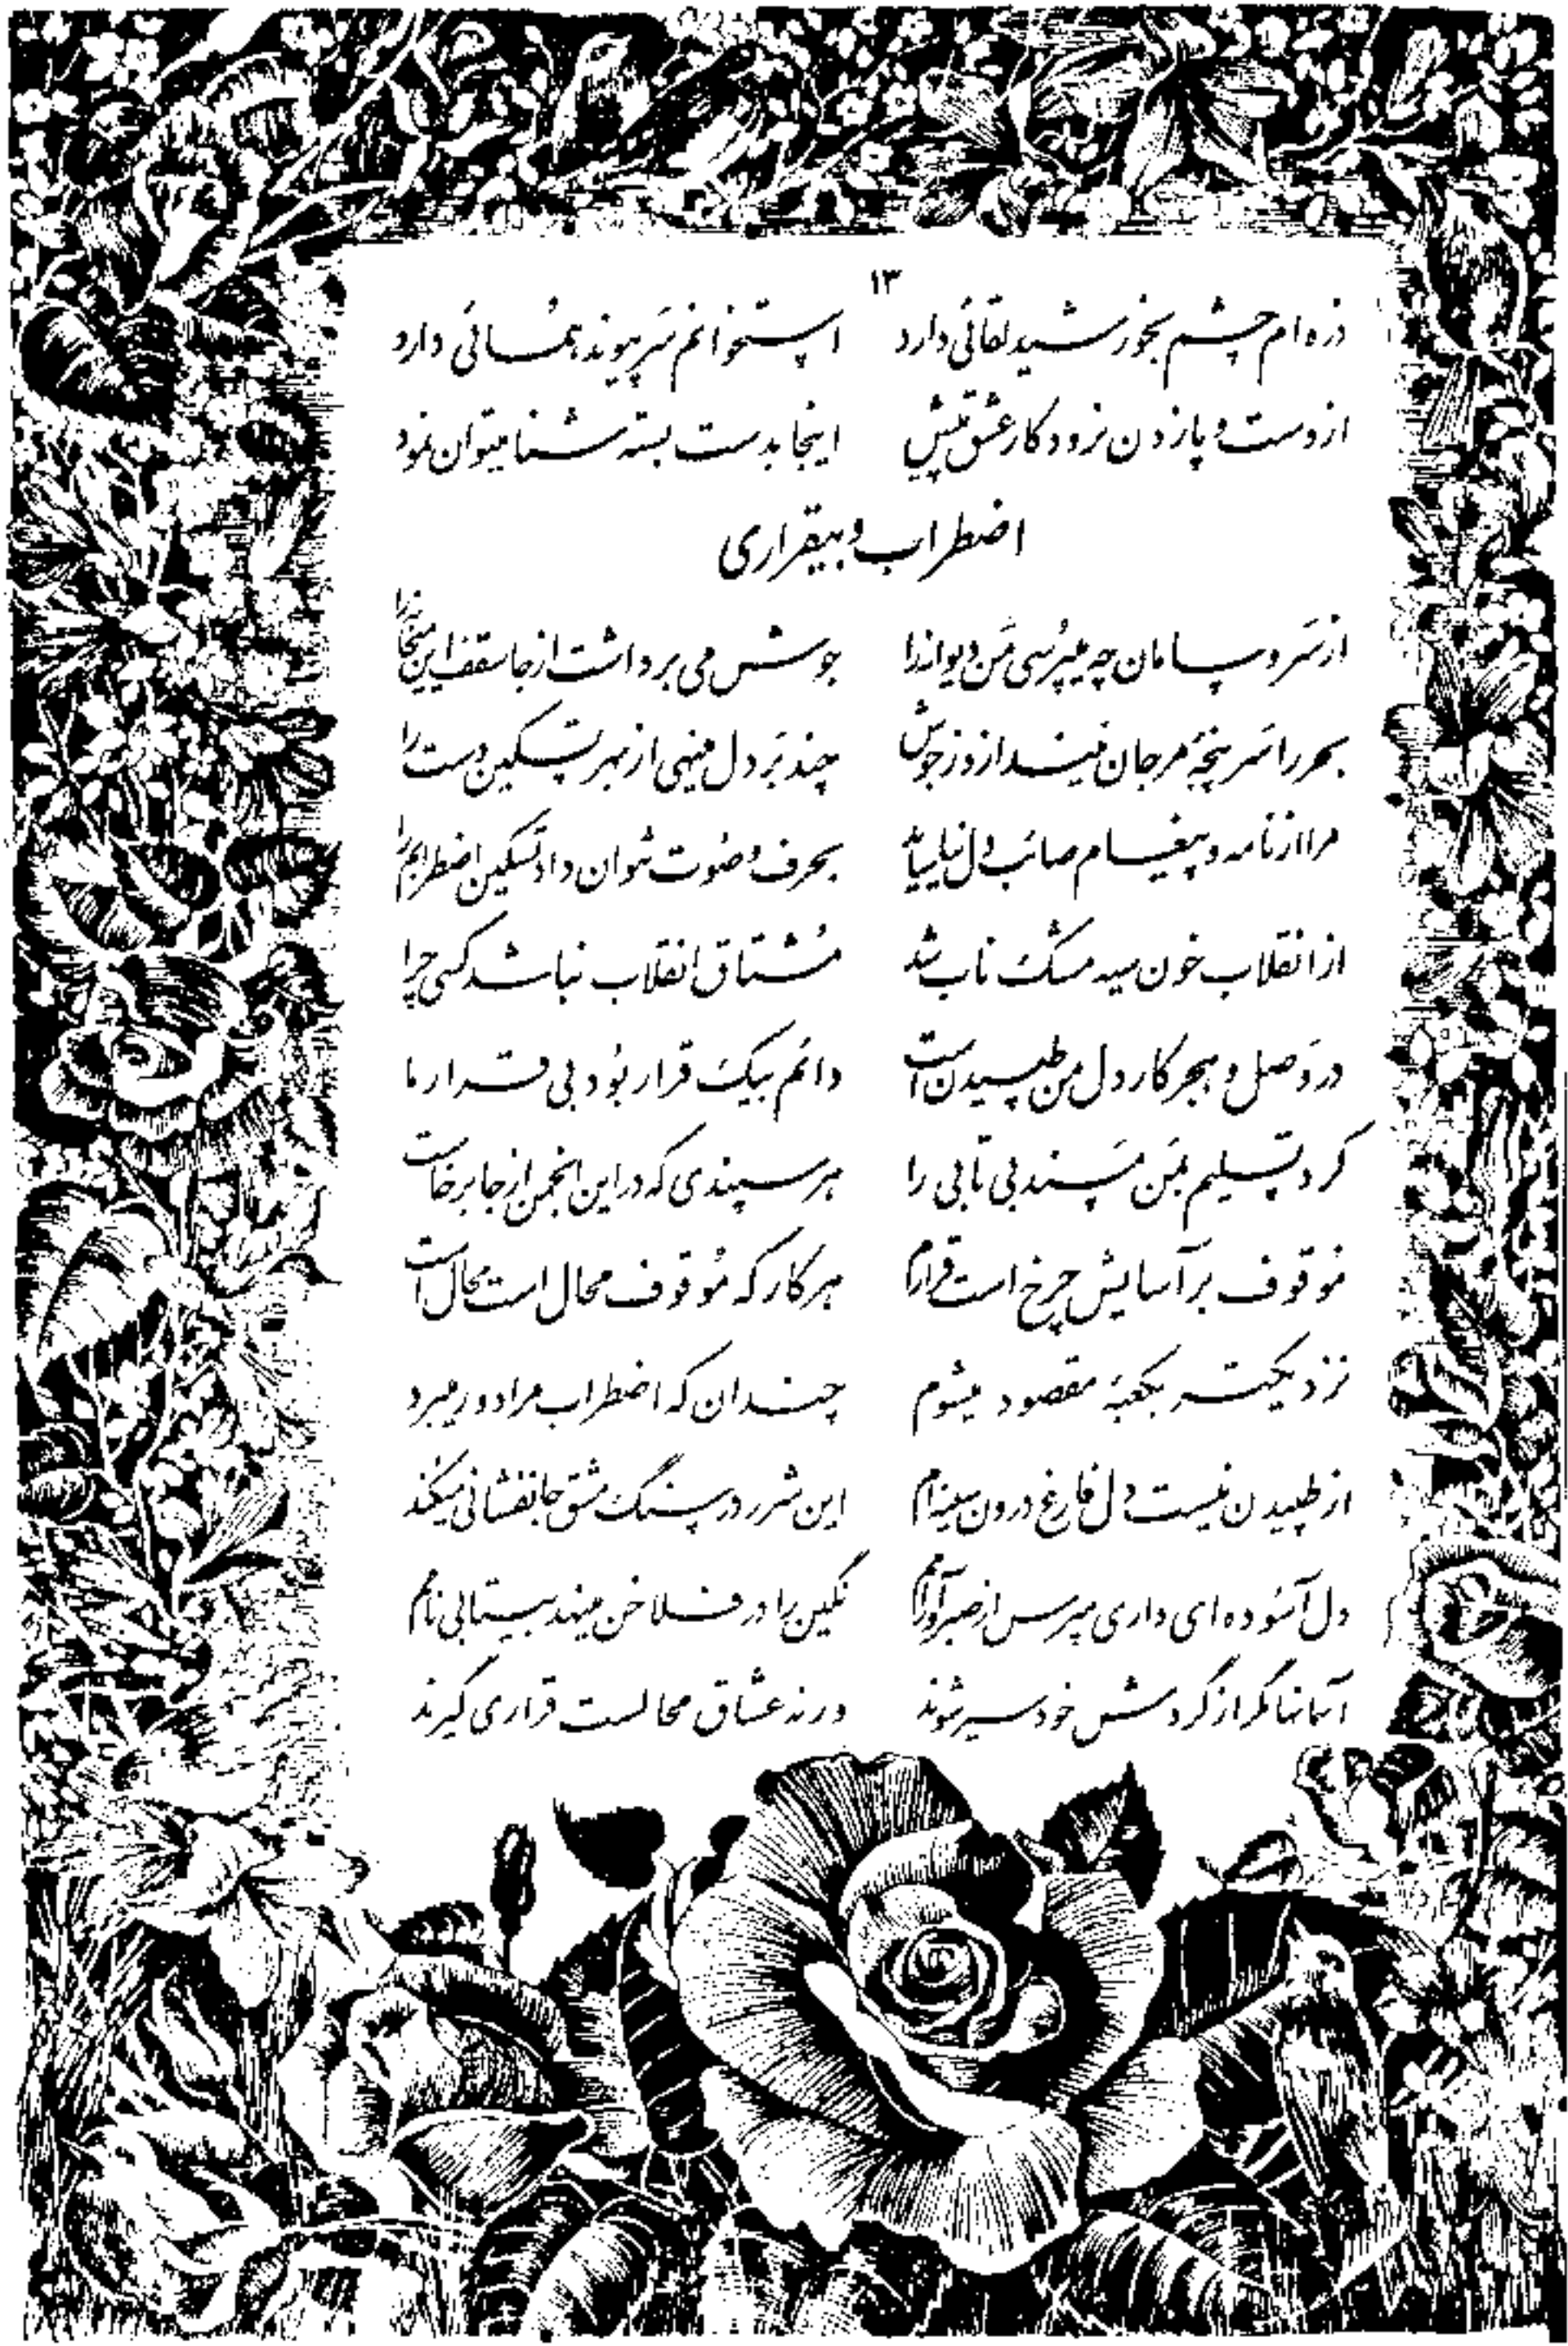 ۱۳
ذره ام چشم بخورشید لقائی دارد استخوانم سر پیوند همائی دارد
از دست و پا زدن نرود کار عشق پیش اینجا بدست بسته شنا میتوان نمود
اضطراب و بیقراری
از سر و سامان چه میپرسی من دیوانه را جوش می برداشت از جا سقف این میخانه را
بحر را سر پنجه مرجان نیندازد ز جوش چند بر دل مینهی از بهر تسکین دست را
مرا از نامه و پیغام صائب دل نیاساید بحرف و صوت نتوان داد تسکین اضطرابم را
از انقلاب خون سیه مشک ناب شد مشتاق انقلاب نباشد کسی چرا
در وصل و هجر کار دل من طپیدن است دائم بیک قرار بود بی قرار ما
کرد تسلیم بمن مسند بی تابی را هر سپندی که در این انجمن از جا برخاست
موقوف بر آسایش چرخ است قرارم هر کار که موقوف محال است محال است
نزدیکتر بکعبهٔ مقصود میشوم چندان که اضطراب مرا دور میبرد
از طپیدن نیست دل فارغ درون سینه ام این شرر در سنگ مشق جانفشانی میکند
دل آسوده ای داری مپرس از صبر و آرامم نگین را در فلاخن مینهد بیتابی نامم
آسمانها مگر از گردش خود سیر شوند ورنه عشاق محالست قراری گیرند